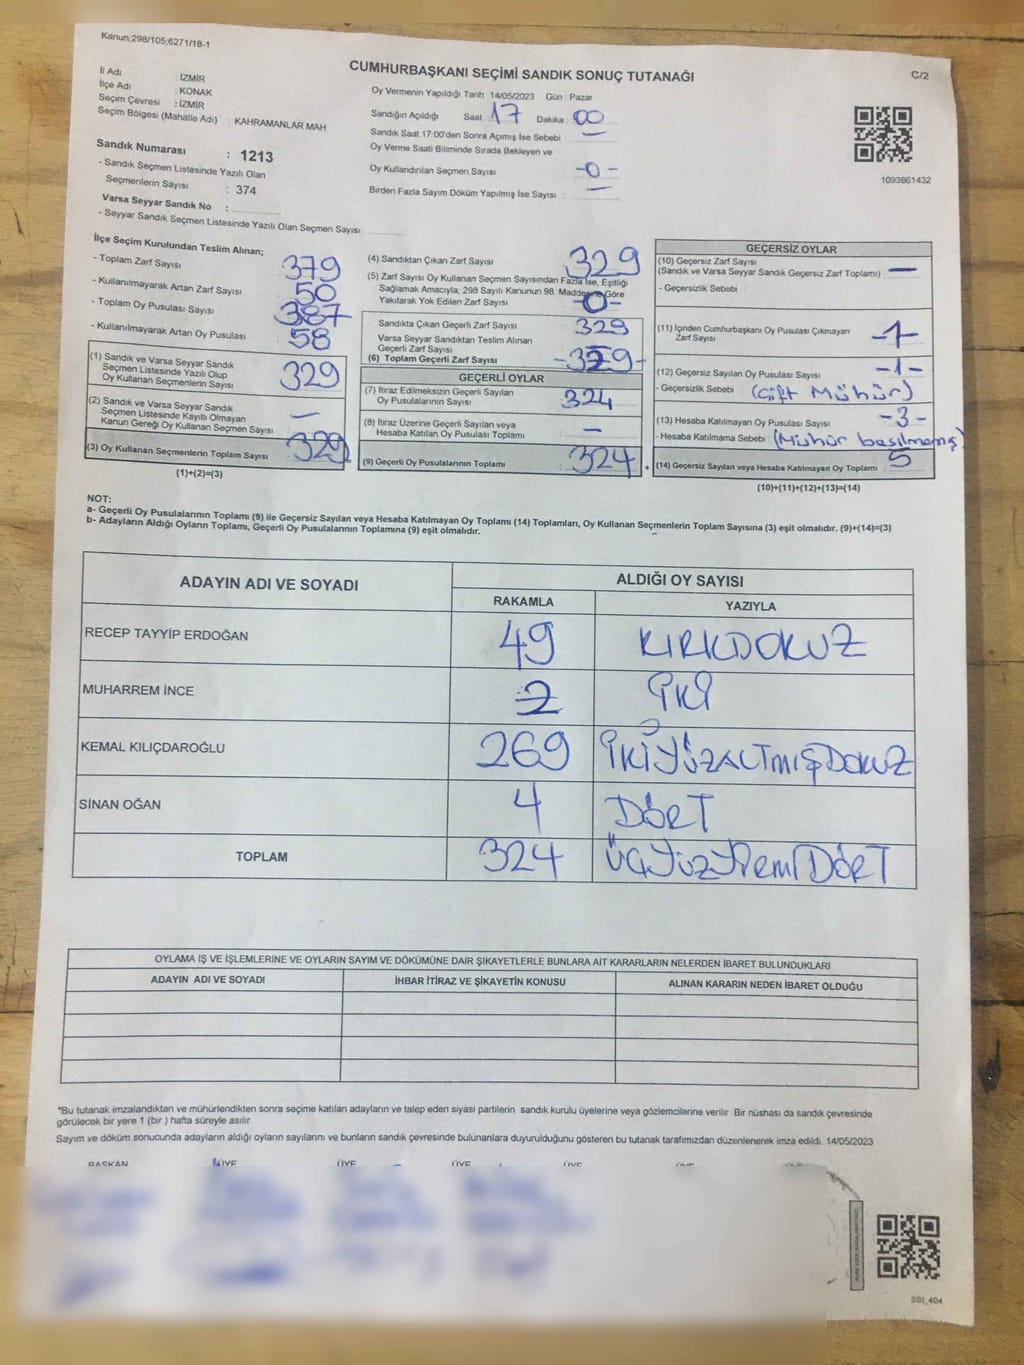 Kanun;298/105;6271/18-1
CUMHURBAŞKANI SEÇİMİ SANDIK SONUÇ TUTANAĞI
C/2
İl Adı : İZMİR
İlçe Adı : KONAK
Seçim Çevresi : İZMİR
Seçim Bölgesi (Mahalle Adı) : KAHRAMANLAR MAH
Sandık Numarası : 1213
- Sandık Seçmen Listesinde Yazılı Olan
Seçmenlerin Sayısı : 374
Varsa Seyyar Sandık No :
- Seyyar Sandık Seçmen Listesinde Yazılı Olan Seçmen Sayısı:
Oy Vermenin Yapıldığı Tarih 14/05/2023 Gün : Pazar
Sandığın Açıldığı Saat 17 Dakika : 00
Sandık Saat 17:00'den Sonra Açımış İse Sebebi : —
Oy Verme Saati Bitiminde Sırada Bekleyen ve
Oy Kullandırılan Seçmen Sayısı : -0-
Birden Fazla Sayım Döküm Yapılmış İse Sayısı : —
1093861432
İlçe Seçim Kurulundan Teslim Alınan;
- Toplam Zarf Sayısı : 379
- Kullanılmayarak Artan Zarf Sayısı : 50
- Toplam Oy Pusulası Sayısı : 387
- Kullanılmayarak Artan Oy Pusulası : 58
(1) Sandık ve Varsa Seyyar Sandık
Seçmen Listesinde Yazılı Olup
Oy Kullanan Seçmenlerin Sayısı : 329
(2) Sandık ve Varsa Seyyar Sandık
Seçmen Listesinde Kayıtlı Olmayan
Kanun Gereği Oy Kullanan Seçmen Sayısı : —
(3) Oy Kullanan Seçmenlerin Toplam Sayısı : 329
(1)+(2)=(3)
(4) Sandıktan Çıkan Zarf Sayısı : 329
(5) Zarf Sayısı Oy Kullanan Seçmen Sayısından Fazla İse, Eşitliği
Sağlamak Amacıyla; 298 Sayılı Kanunun 98. Maddesine Göre
Yakılarak Yok Edilen Zarf Sayısı : -0-
Sandıkta Çıkan Geçerli Zarf Sayısı : 329
Varsa Seyyar Sandıktan Teslim Alınan
Geçerli Zarf Sayısı :
(6) Toplam Geçerli Zarf Sayısı : -329-
GEÇERLİ OYLAR
(7) İtiraz Edilmeksizin Geçerli Sayılan
Oy Pusulalarının Sayısı : 324
(8) İtiraz Üzerine Geçerli Sayılan veya
Hesaba Katılan Oy Pusulası Toplamı : —
(9) Geçerli Oy Pusulalarının Toplamı : 324
+
GEÇERSİZ OYLAR
(10) Geçersiz Zarf Sayısı
(Sandık ve Varsa Seyyar Sandık Geçersiz Zarf Toplamı) : —
- Geçersizlik Sebebi :
(11) İçinden Cumhurbaşkanı Oy Pusulası Çıkmayan
Zarf Sayısı : -1-
(12) Geçersiz Sayılan Oy Pusulası Sayısı : -1-
- Geçersizlik Sebebi : (Çift Mühür)
(13) Hesaba Katılmayan Oy Pusulası Sayısı : -3-
- Hesaba Katılmama Sebebi : (Mühür basılmamış)
(14) Geçersiz Sayılan veya Hesaba Katılmayan Oy Toplamı : 5
(10)+(11)+(12)+(13)=(14)
NOT:
a- Geçerli Oy Pusulalarının Toplamı (9) ile Geçersiz Sayılan veya Hesaba Katılmayan Oy Toplamı (14) Toplamları, Oy Kullanan Seçmenlerin Toplam Sayısına (3) eşit olmalıdır. (9)+(14)=(3)
b- Adayların Aldığı Oyların Toplamı, Geçerli Oy Pusulalarının Toplamına (9) eşit olmalıdır.
ADAYIN ADI VE SOYADI
ALDIĞI OY SAYISI
RAKAMLA YAZIYLA
RECEP TAYYİP ERDOĞAN 49 KIRKDOKUZ
MUHARREM İNCE 2 İKİ
KEMAL KILIÇDAROĞLU 269 İKİYÜZALTMIŞDOKUZ
SİNAN OĞAN 4 DÖRT
TOPLAM 324 ÜÇYÜZYİRMİDÖRT
OYLAMA İŞ VE İŞLEMLERİNE VE OYLARIN SAYIM VE DÖKÜMÜNE DAİR ŞİKAYETLERLE BUNLARA AİT KARARLARIN NELERDEN İBARET BULUNDUKLARI
ADAYIN ADI VE SOYADI İHBAR İTİRAZ VE ŞİKAYETİN KONUSU ALINAN KARARIN NEDEN İBARET OLDUĞU
*Bu tutanak imzalandıktan ve mühürlendikten sonra seçime katılan adayların ve talep eden siyasi partilerin sandık kurulu üyelerine veya gözlemcilerine verilir. Bir nüshası da sandık çevresinde
görülecek bir yere 1 (bir ) hafta süreyle asılır.
Sayım ve döküm sonucunda adayların aldığı oyların sayılarını ve bunların sandık çevresinde bulunanlara duyurulduğunu gösteren bu tutanak tarafımızdan düzenlenerek imza edildi. 14/05/2023
BAŞKAN ÜYE ÜYE ÜYE ÜYE ÜYE ÜYE
SSI_404